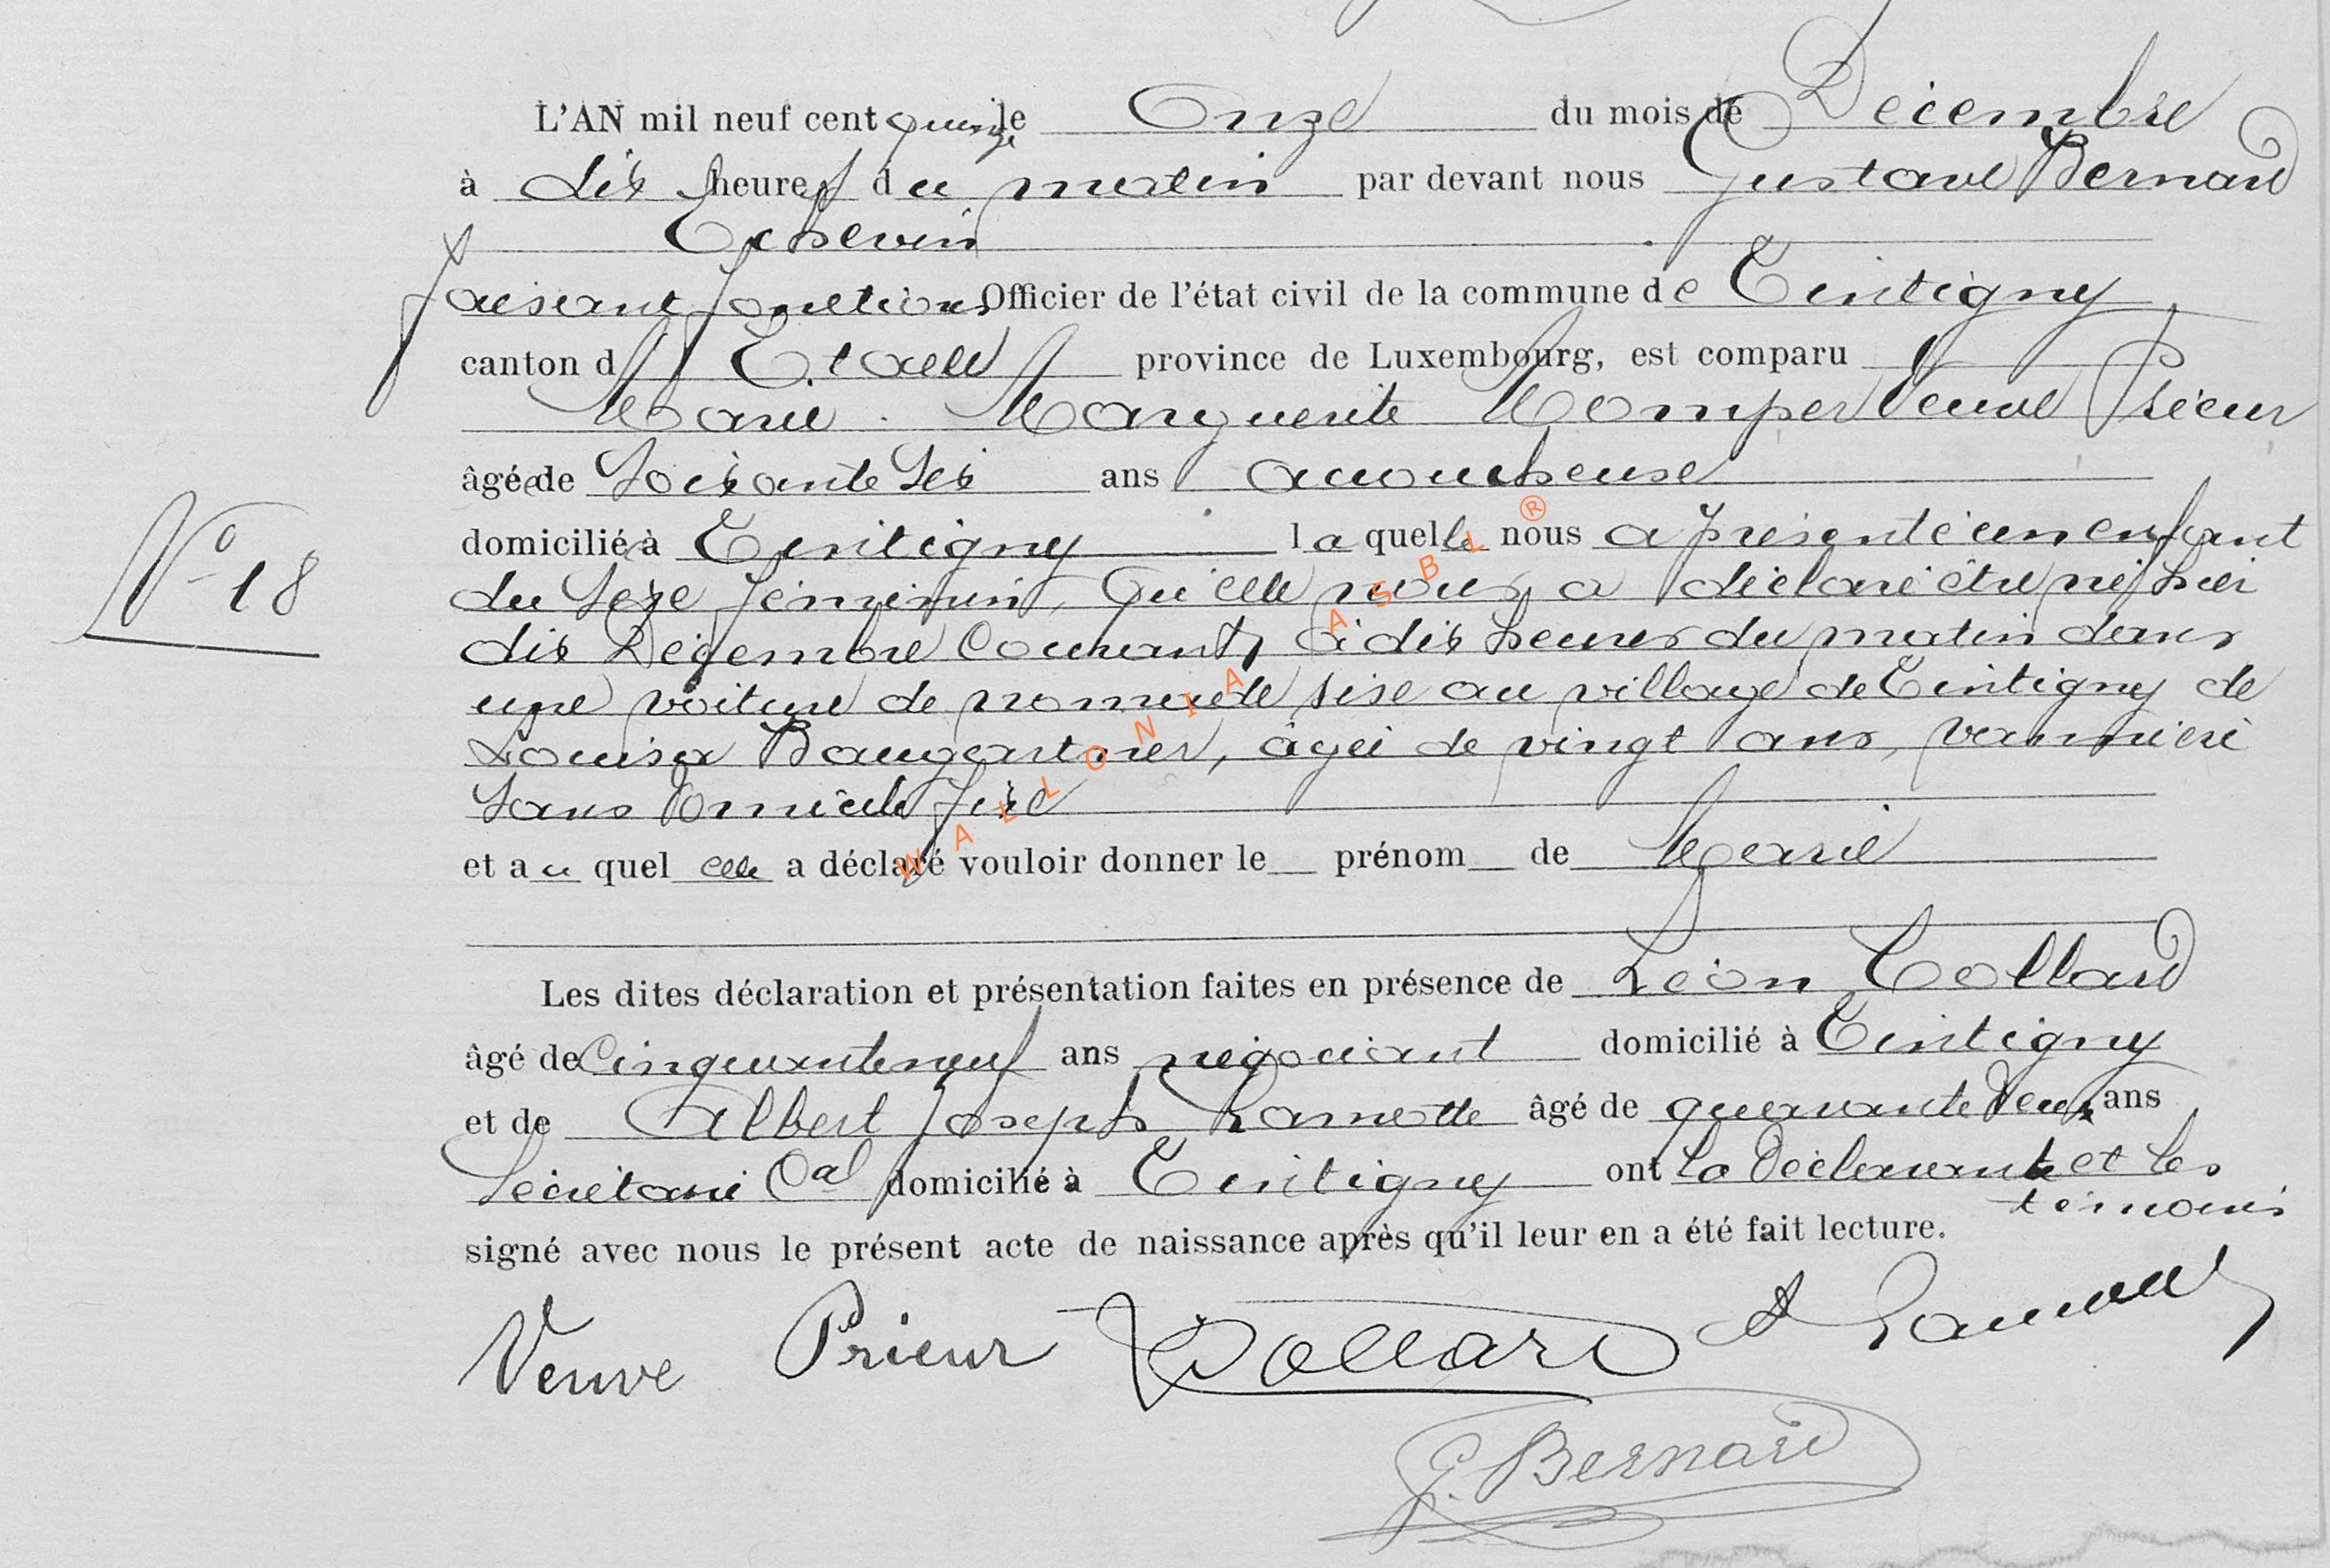 L'AN mil neuf cent quinze le Onze du mois de Décembre
à dix heures du matin par devant nous Gustave Bernard
Echevin
faisant fonctions Officier de l'état civil de la commune de Tintigny
canton d'Etalle province de Luxembourg, est comparu
Marie Marguerite Momper Veuve Prieur
âgée de Soixante Six ans acoucheuse
domiciliée à Tintigny laquelle nous a présenté un enfant
N° 18
du Sexe féminin, qu'elle nous a déclaré être né hier
dix Décembre Courant, à dix heures du matin dans
une voiture de nomade sise au village de Tintigny de
Louisa Baugartner, âgée de vingt ans, vannière
Sans Domicile fixe
et au quel elle a déclaré vouloir donner le prénom de Marie
Les dites déclaration et présentation faites en présence de Léon Collard
âgé de Cinquanteneuf ans négociant domicilié à Tintigny
et de Albert Joseph Lamotte âgé de quarante Deux ans
Secrétaire Cal domicilié à Tintigny ont la Déclarante et les
témoins
signé avec nous le présent acte de naissance après qu'il leur en a été fait lecture.
Veuve Prieur Collard A Lamotte
G. Bernard
WALLONIA ASBL ®